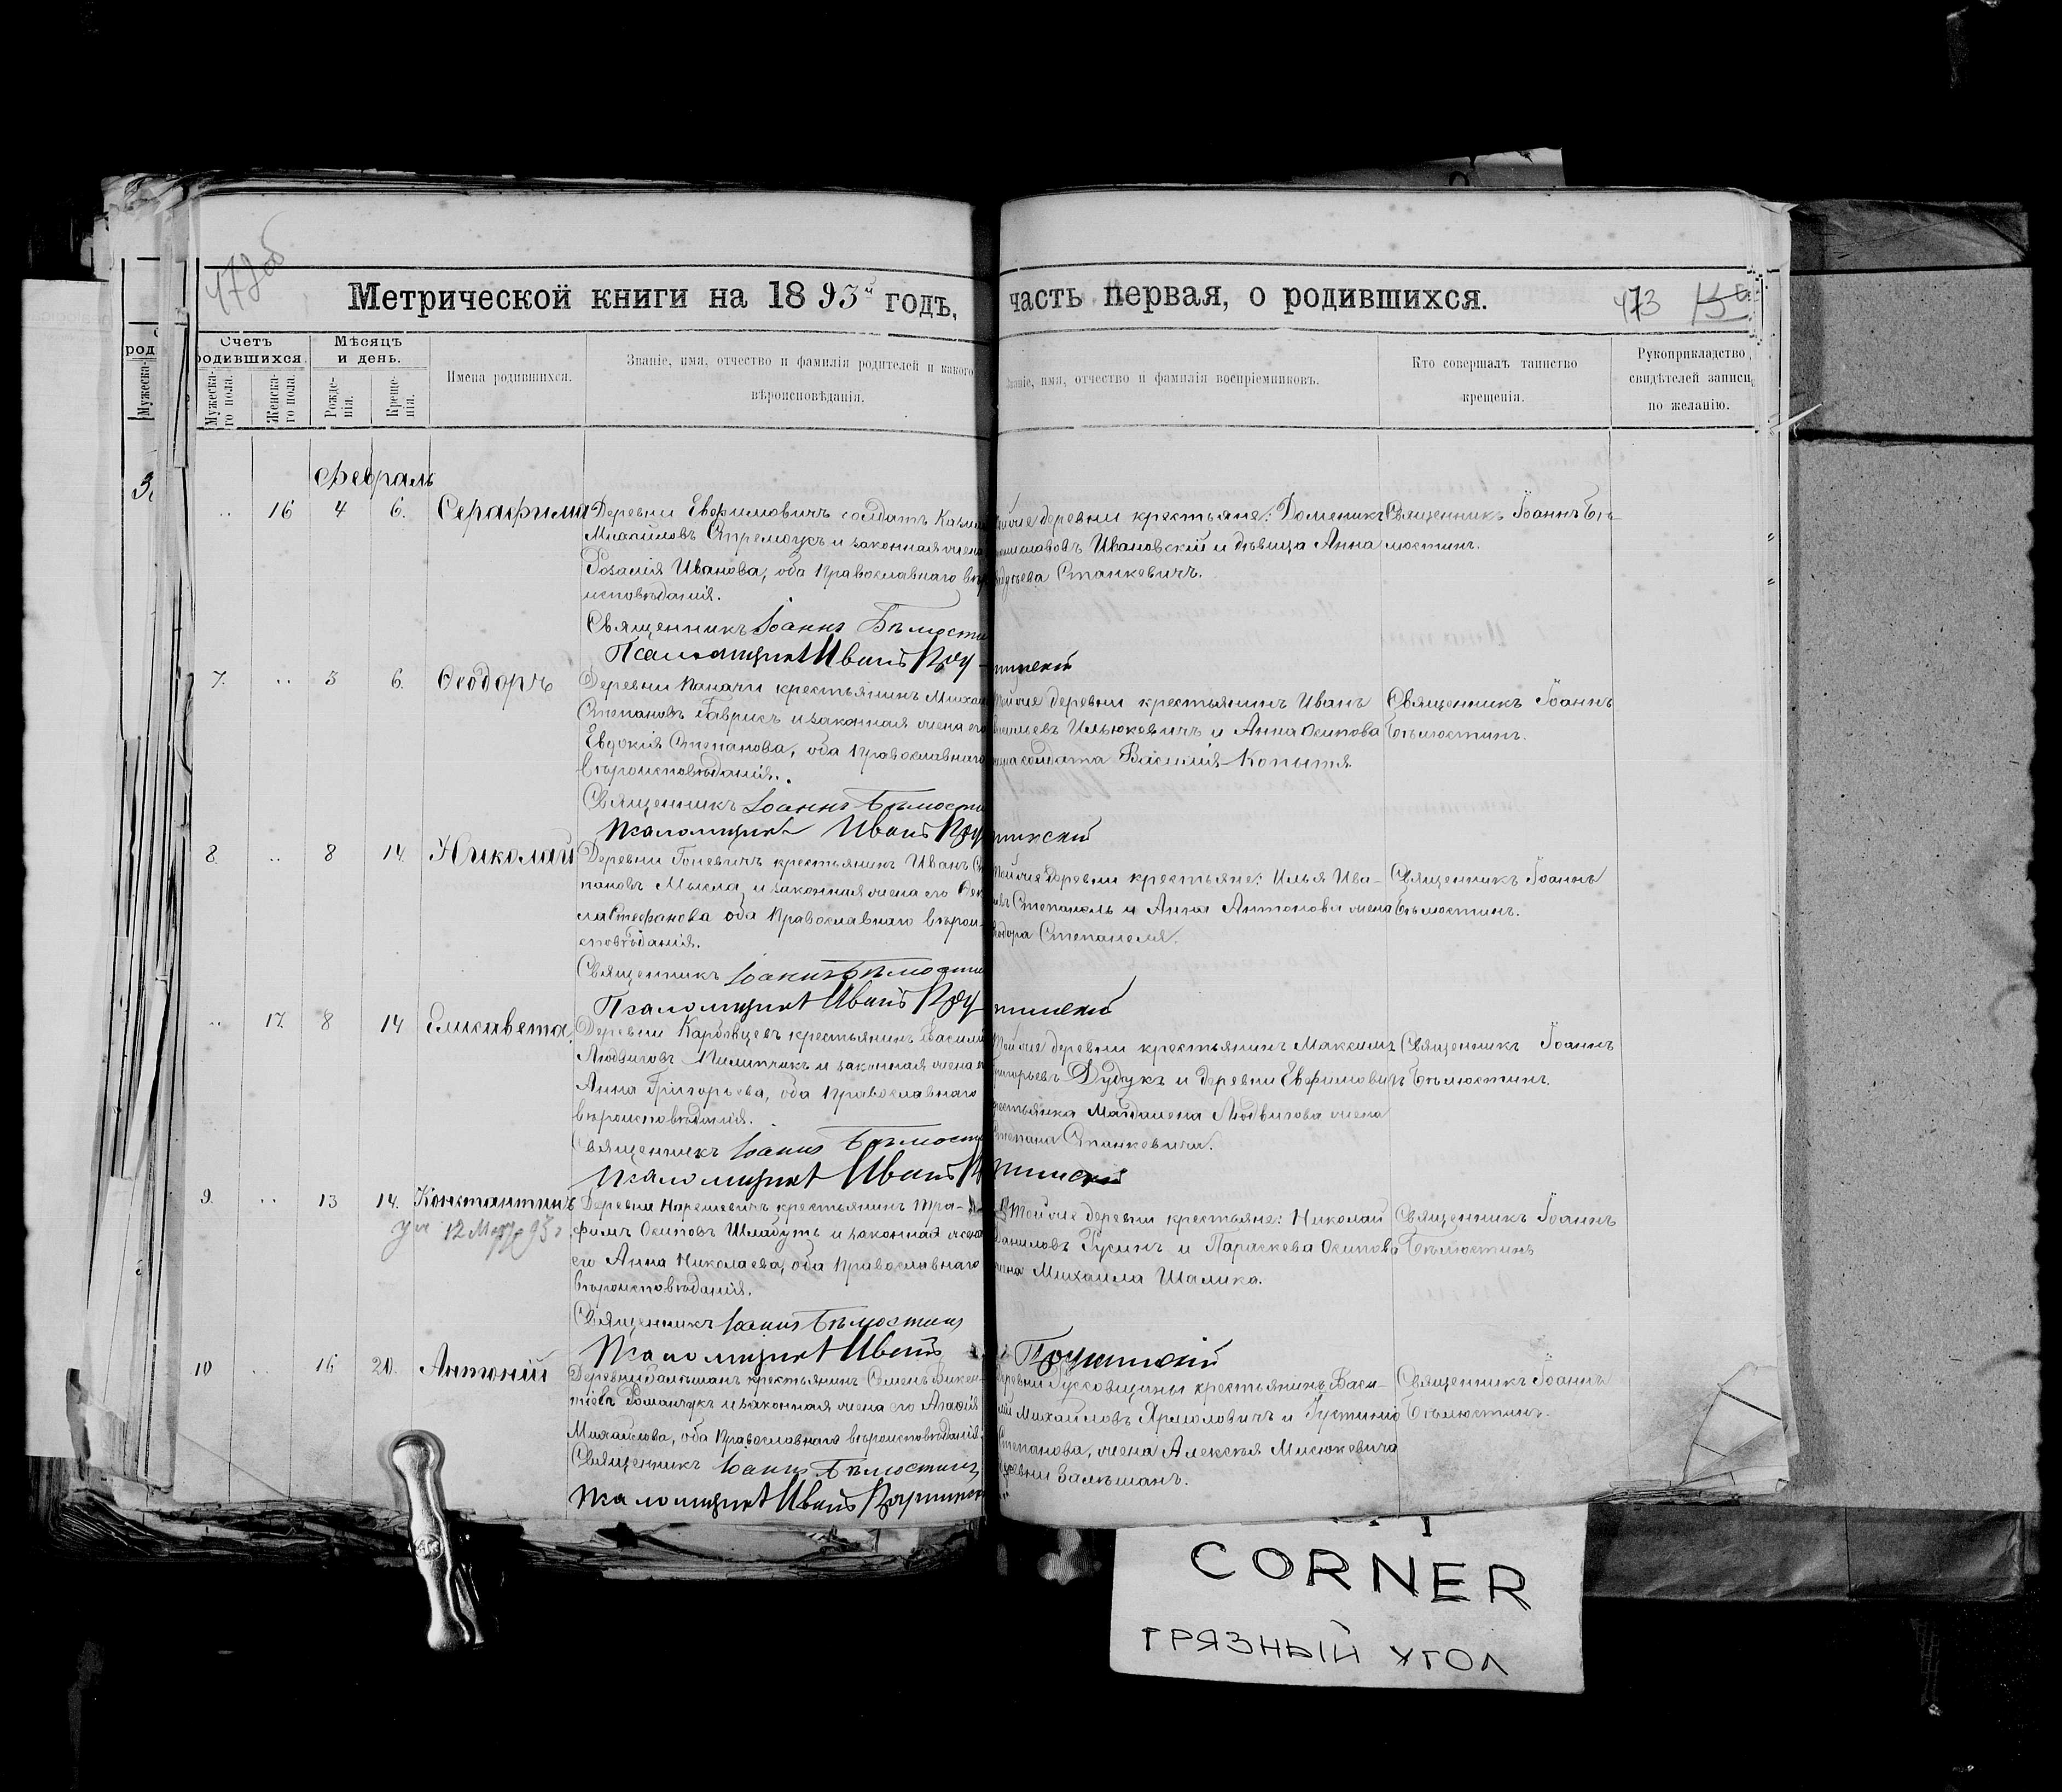 472об
Метрической книги на 1893й годъ, часть первая, о родившихся.
473
Счетъ родившихся.
Мужеска-го пола.
Женска-го пола.
Мѣсяцъ и день.
Рожде-нія.
Креще-нія.
Имена родившихся.
Званіе, имя, отчество и фамилія родителей и какого
вѣроисповѣданія.
Званіе, имя, отчество и фамилія воспріемниковъ.
Кто совершалъ таинство
крещенія.
Рукоприкладство
свидѣтелей записи
по желанію.
род
Мужеска-
Февраль
16 4 6. Серафима
Деревни Евфимовичъ солдатъ
Михайловъ и законная жена
Розалія Иванова, оба Православнаго вѣ
исповѣданія.
Священникъ Іоаннъ Бѣлюсти
Псаломщикъ Иванъ
деревни крестьяне: Доменикъ
Ивановскій и дѣвица Анна
Станкевичъ.
Священникъ Іоаннъ Бѣ-
люстинъ.
7. 5 6. Ѳеодоръ
Деревни Паначи крестьянинъ Михаи
Степановъ Гаврисъ и законная жена его
Евдокія Степанова, оба Православнаго
вѣроисповѣданія.
Священникъ Іоаннъ Бѣлюсти
Псаломщикъ Иванъ
деревни крестьянинъ Иванъ
Ильюкевичъ и Анна Осипова
жена солдата Василія Копытя.
Священникъ Іоаннъ
Бѣлюстинъ.
8. 8 14. Николай
Деревни крестьянинъ Иванъ С
пановъ Мысла и законная жена его Ѳек
ла Стефанова оба Православнаго вѣрои-
сповѣданія.
Священникъ Іоаннъ Бѣлюсти
Псаломщикъ Иванъ
Той же деревни крестьяне: Илья Ива-
въ Степанель и Анна Антонова жена
Степанеля.
Священникъ Іоаннъ
Бѣлюстинъ.
17. 8 14 Елисавета.
Деревни крестьянинъ Васили
Людвиговъ Пилипчикъ и законная жена е
Анна Григорьева, оба Православнаго
вѣроисповѣданія.
Священникъ Іоаннъ Бѣлюсти
Псаломщикъ Иванъ
Той же деревни крестьянинъ Максимъ
Дудукъ и деревни Евфимовичъ
Магдалена Людвигова жена
Степана Станкевича.
Священникъ Іоаннъ
Бѣлюстинъ.
9. 13 14. Константинъ
ум 12
Деревни Нарешевичъ крестьянинъ Тро-
фимъ Осиповъ Шлабутъ и законная жена
его Анна Николаева, оба Православнаго
вѣроисповѣданія.
Священникъ Іоаннъ Бѣлюстинъ
Псаломщикъ Иванъ
Той же деревни крестьяне: Николай
Даниловъ Русинъ и Параскева Осипова
жена Михаила Шалика.
Священникъ Іоаннъ
Бѣлюстинъ
10 16 20. Антоній
Деревни Залѣшанъ крестьянинъ Семенъ Викен-
тіевъ Романчукъ и законная жена его Агафія
Михайлова, оба Православнаго вѣроисповѣданія.
Священникъ Іоаннъ Бѣлюстинъ
Псаломщикъ Иванъ
деревни Руссовщины крестьянинъ Васи-
лій Михайловъ Ярмоловичъ и Іустинія
Степанова, жена Алексѣя Мисюкевича
деревни Залѣшанъ.
Священникъ Іоаннъ
Бѣлюстинъ.
CORNER
ГРЯЗНЫЙ УГОЛ